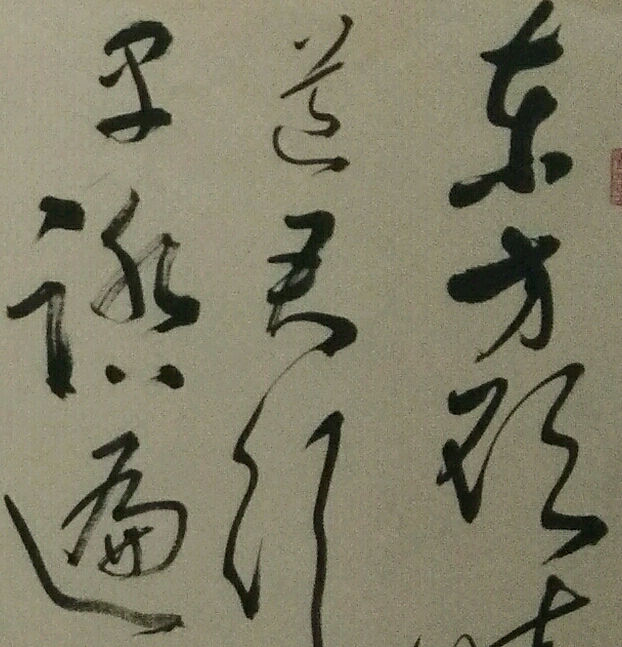 东方欲
道君行
早踏遍